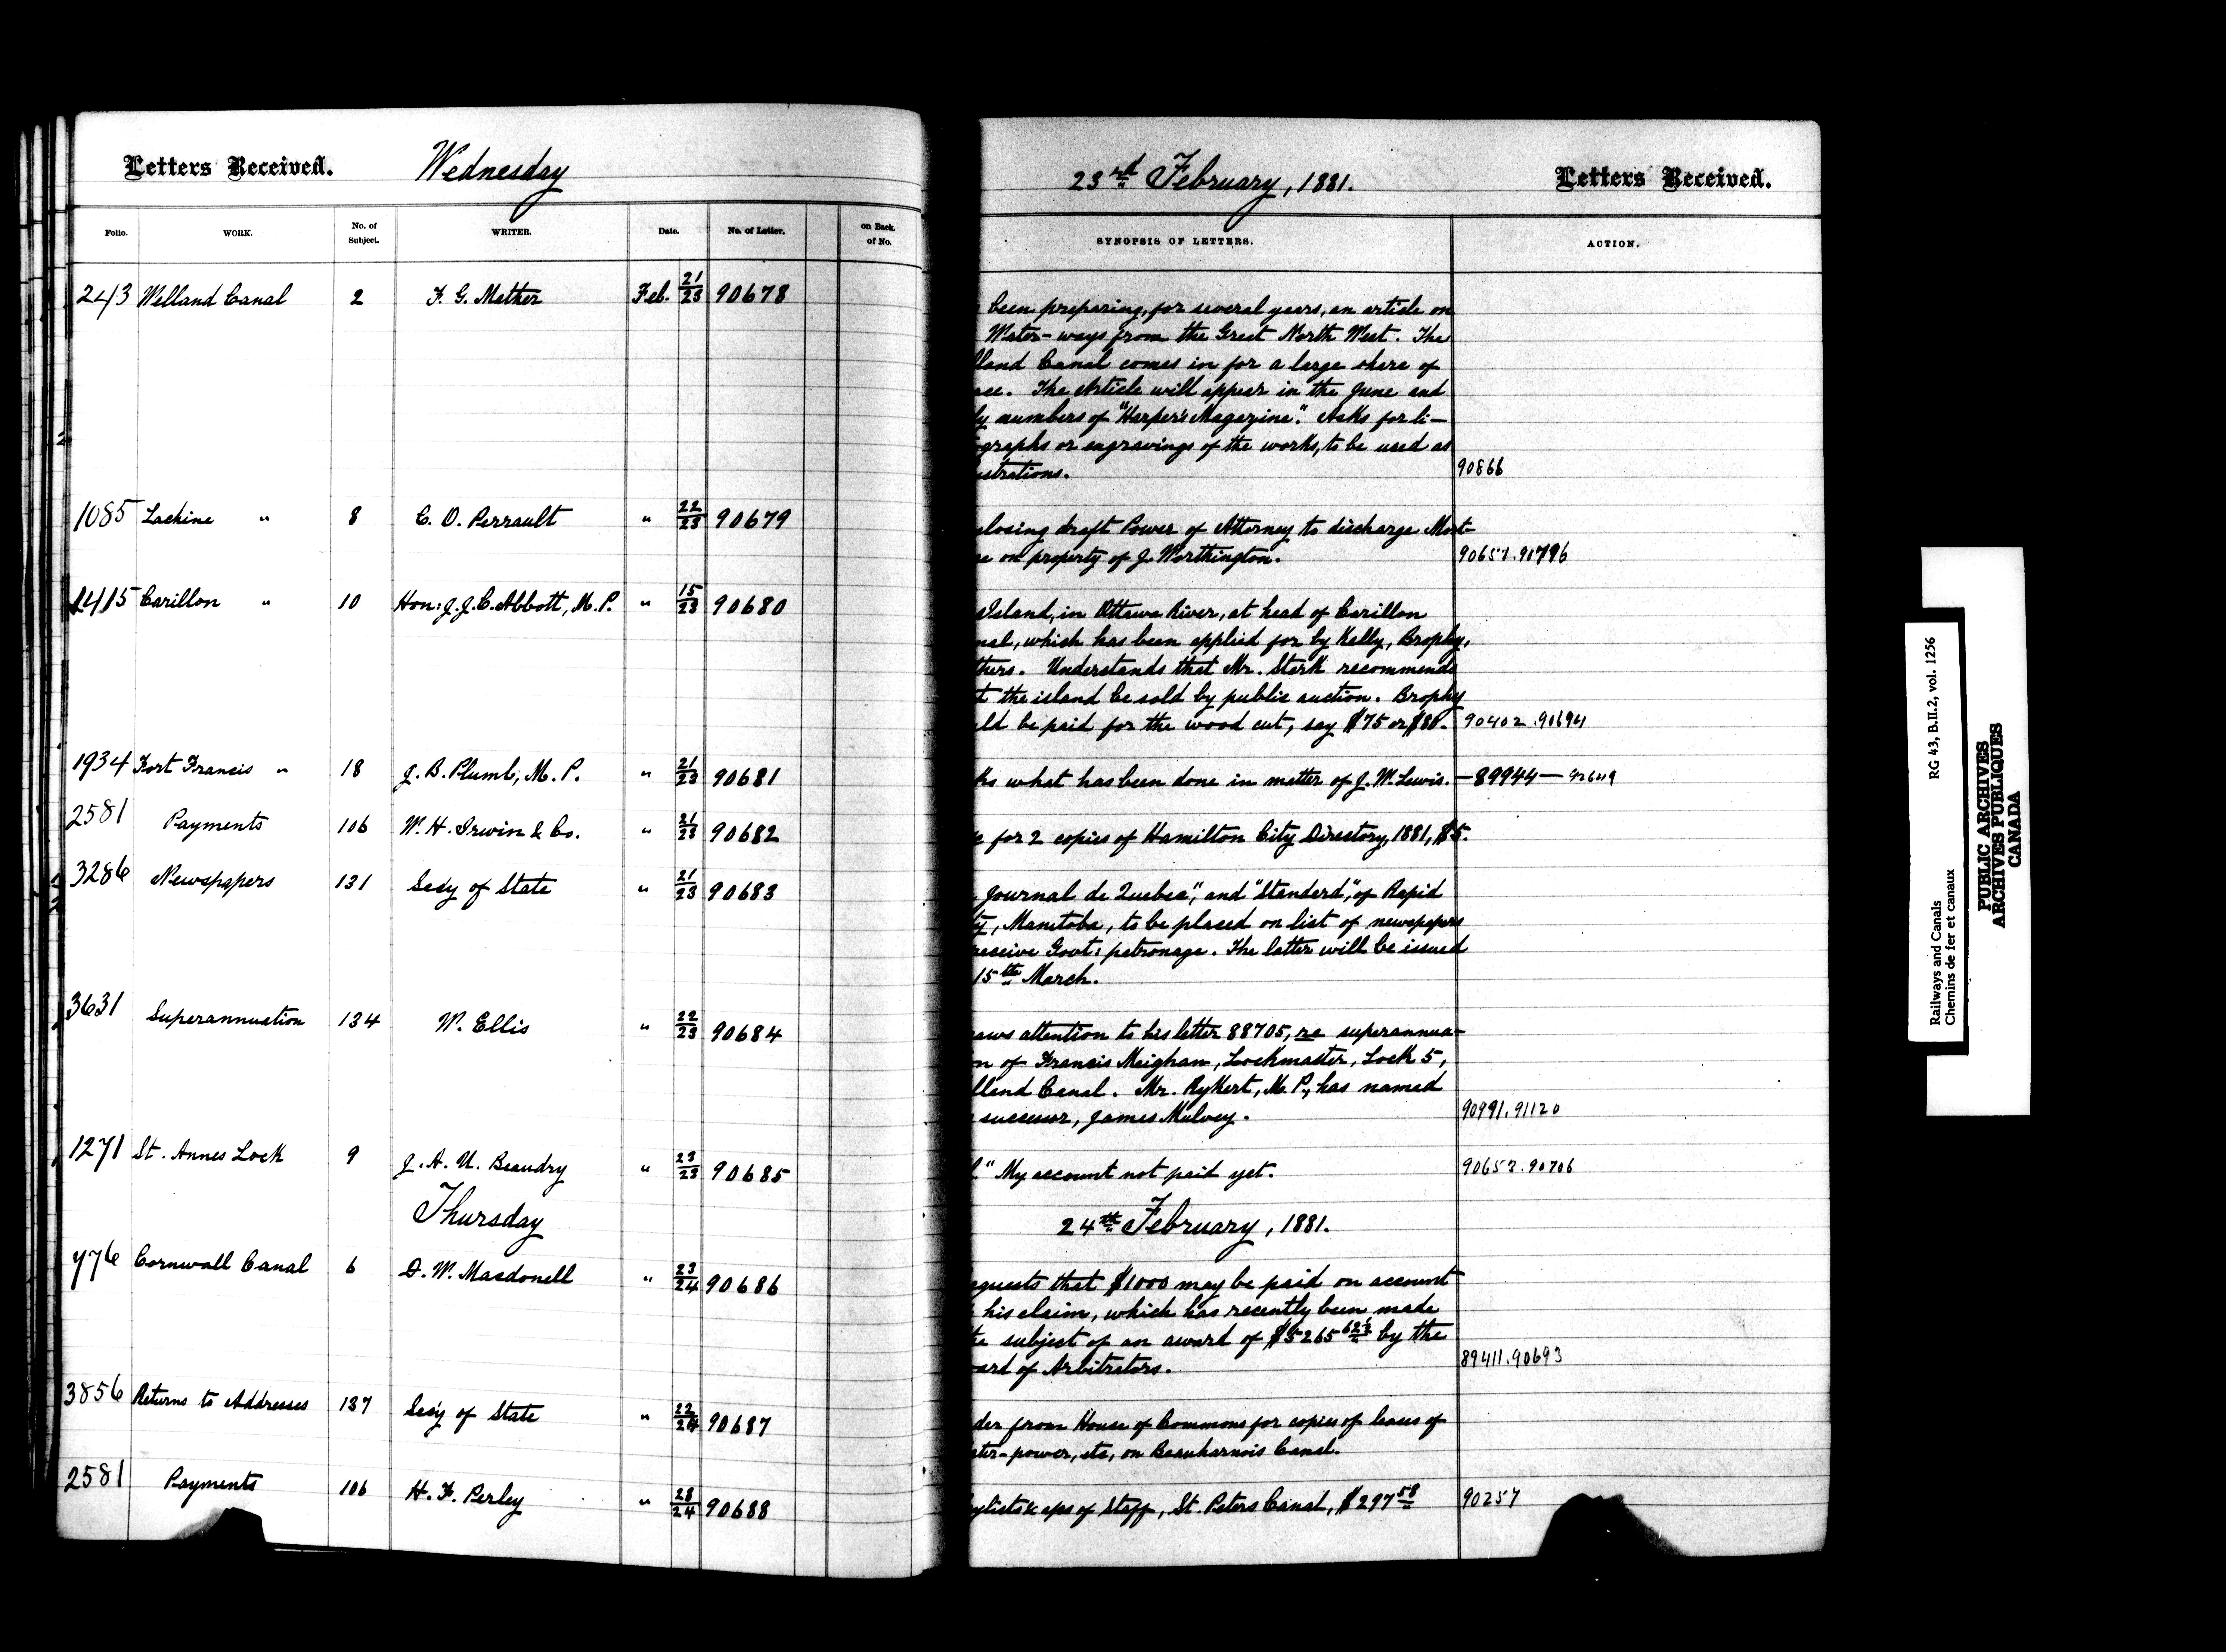 Letters Received.
Wednesday
Folio. WORK. No. of Subject. WRITER. Date. No. of Letter. on Back of No.
243 Welland Canal 2 F. G. Mather Feb. 21/23 90678
1085 Lachine " 8 C. O. Perrault " 22/23 90679
1415 Carillon " 10 Hon: J. J. C. Abbott, M. P. " 15/23 90680
1934 Fort Francis " 18 J. B. Plumb, M. P. " 21/23 90681
2581 Payments 106 W. H. Irwin & Co. " 21/23 90682
3286 Newspapers 131 Secy of State " 21/23 90683
3631 Superannuation 134 W. Ellis " 22/23 90684
1271 St. Annes Lock 9 J. A. U. Beaudry " 23/23 90685
Thursday
776 Cornwall Canal 6 D. W. Macdonell " 23/24 90686
3856 Returns to Addresses 137 Secy of State " 22/24 90687
2581 Payments 106 H. F. Perley " 23/24 90688
23rd February, 1881.
Letters Received.
SYNOPSIS OF LETTERS. ACTION.
been preparing, for several years, an article on
Water-ways from the Great North West. The
lland Canal comes in for a large share of
ace. The Article will appear in the June and
ly numbers of "Harper's Magazine". Asks for li-
ographs or engravings of the works, to be used as
ustrations. 90866
closing draft Power of Attorney to discharge Mort-
e on property of J. Worthington. 90657.91796
Island, in Ottawa River, at head of Carillon
nal, which has been applied for by Kelly, Brophy,
thers. Understands that Mr. Stark recommends
t the island be sold by public auction. Brophy
uld be paid for the wood cut, say $75 or $80. 90402.90694
ks what has been done in matter of J. W. Lewis. —89944—92649
c for 2 copies of Hamilton City Directory, 1881, $5.
Journal de Quebec", and "Standard", of Rapid
ty, Manitoba, to be placed on list of newspapers
receive Govt: patronage. The latter will be issued
15th March.
aws attention to his letter 88705, re superannua-
on of Francis Meighan, Lockmaster, Lock 5,
lland Canal. Mr. Rykert, M. P., has named
successor, James Mulvey. 90991.91120
l." My account not paid yet. 90653.90706
24th February, 1881.
equests that $1000 may be paid on account
his claim, which has recently been made
the subject of an award of $5265 62½ by the
oard of Arbitrators. 89411.90693
der from House of Commons for copies of leases of
ater-power, etc, on Beauharnois Canal.
aylists & exps of Staff, St. Peters Canal, $297 58 90257
Railways and Canals RG 43, B.II.2, vol. 1256
Chemins de fer et canaux
PUBLIC ARCHIVES
ARCHIVES PUBLIQUES
CANADA